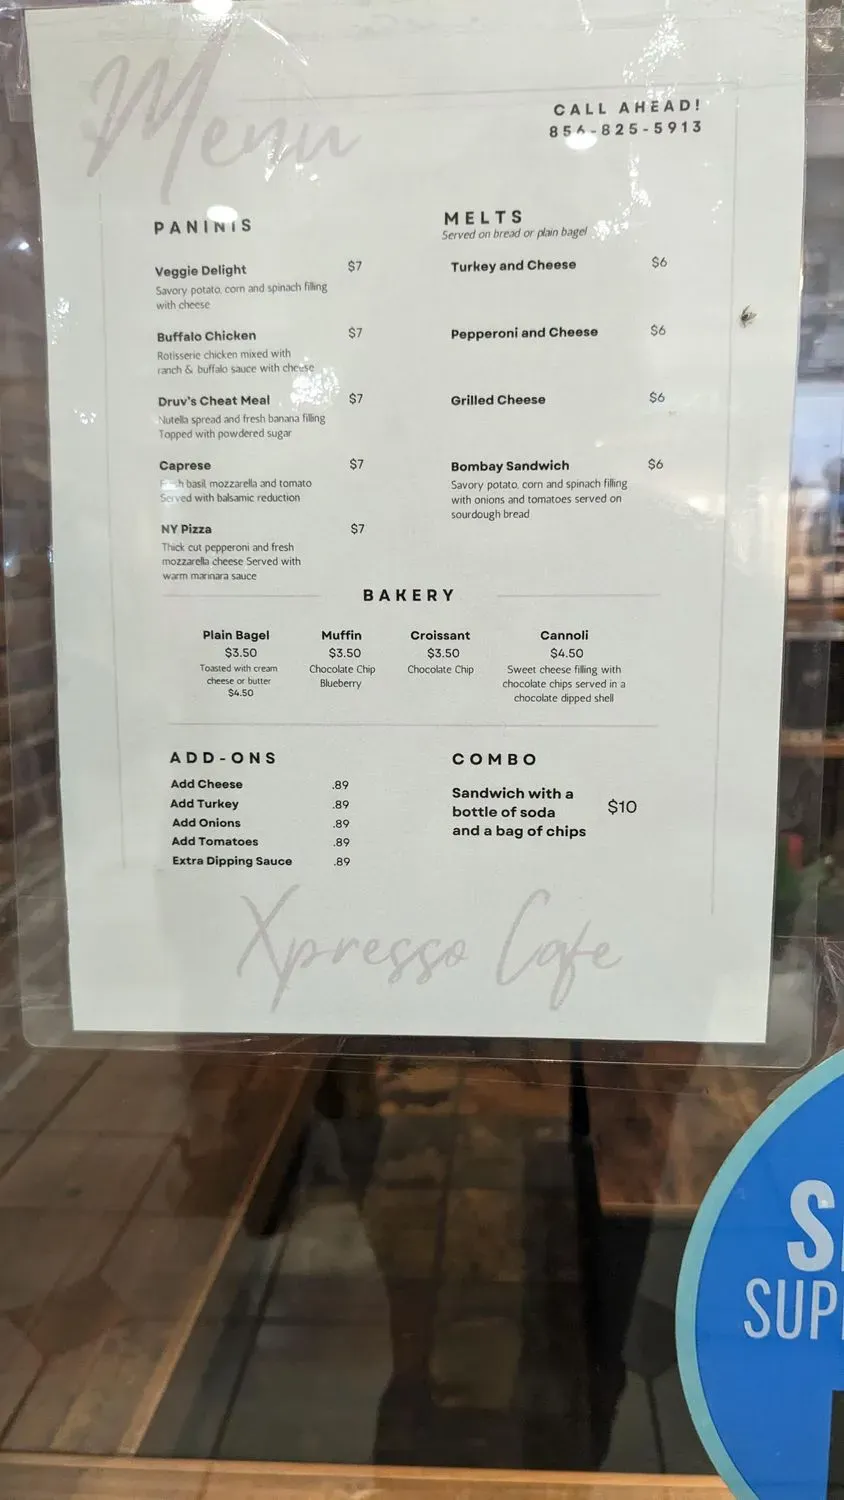 Menu
CALL AHEAD!
856-825-5913
PANINIS
Veggie Delight $7
Savory potato, corn and spinach filling
with cheese
Buffalo Chicken $7
Rotisserie chicken mixed with
ranch & buffalo sauce with cheese
Druv's Cheat Meal $7
Nutella spread and fresh banana filling
Topped with powdered sugar
Caprese $7
Fresh basil, mozzarella and tomato
Served with balsamic reduction
NY Pizza $7
Thick cut pepperoni and fresh
mozzarella cheese Served with
warm marinara sauce
MELTS
Served on bread or plain bagel
Turkey and Cheese $6
Pepperoni and Cheese $6
Grilled Cheese $6
Bombay Sandwich $6
Savory potato, corn and spinach filling
with onions and tomatoes served on
sourdough bread
BAKERY
Plain Bagel
$3.50
Toasted with cream
cheese or butter
$4.50
Muffin
$3.50
Chocolate Chip
Blueberry
Croissant
$3.50
Chocolate Chip
Cannoli
$4.50
Sweet cheese filling with
chocolate chips served in a
chocolate dipped shell
ADD-ONS
Add Cheese .89
Add Turkey .89
Add Onions .89
Add Tomatoes .89
Extra Dipping Sauce .89
COMBO
Sandwich with a
bottle of soda
and a bag of chips
$10
Xpresso Cafe